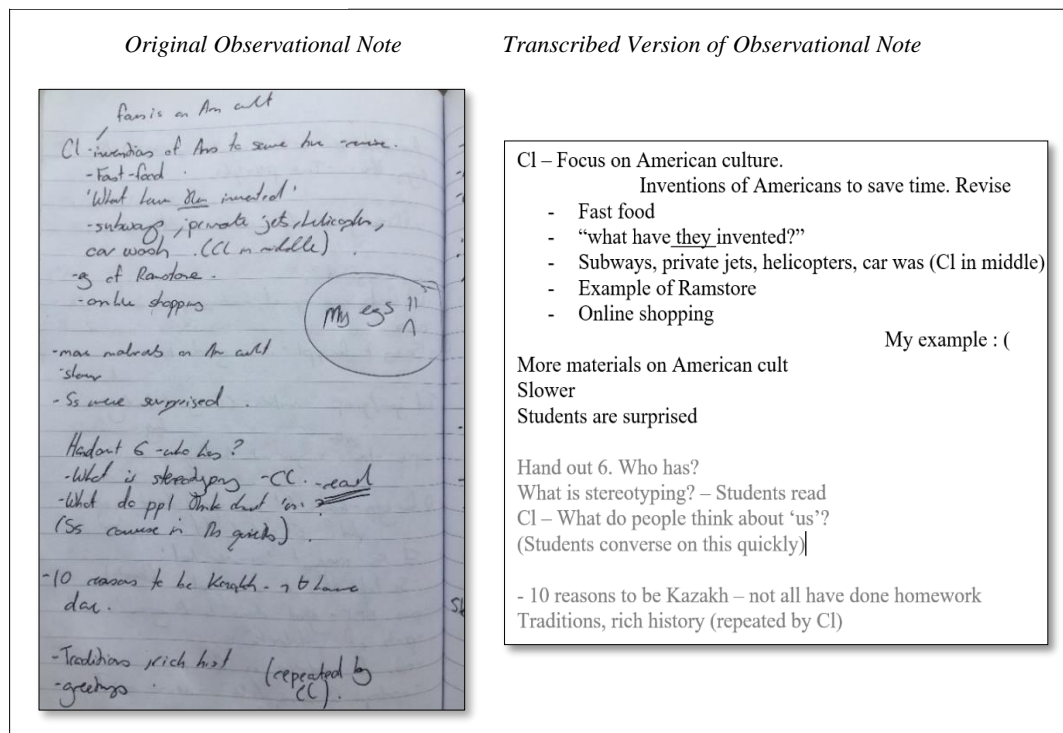 Original Observational Note
Transcribed Version of Observational Note
focus is on Am cult
Cl - inventions of Ams to save time - revise.
- Fast-food
'What have they invented'
- subways, private jets, helicopters,
car wash. (Cl in middle)
- eg of Ramstore.
- online shopping
My egs
- more materials on Am cult
- slower
- Ss were surprised.
Handout 6 - who has?
- What is stereotyping - Cl. - read
- What do ppl think about 'us'?
(Ss converse in this quickly).
- 10 reasons to be Kazakh - have
done.
- Traditions, rich hist (repeated by
Cl).
- greetings
Cl – Focus on American culture.
Inventions of Americans to save time. Revise
- Fast food
- “what have they invented?”
- Subways, private jets, helicopters, car was (Cl in middle)
- Example of Ramstore
- Online shopping
My example : (
More materials on American cult
Slower
Students are surprised
Hand out 6. Who has?
What is stereotyping? – Students read
Cl – What do people think about ‘us’?
(Students converse on this quickly)
- 10 reasons to be Kazakh – not all have done homework
Traditions, rich history (repeated by Cl)